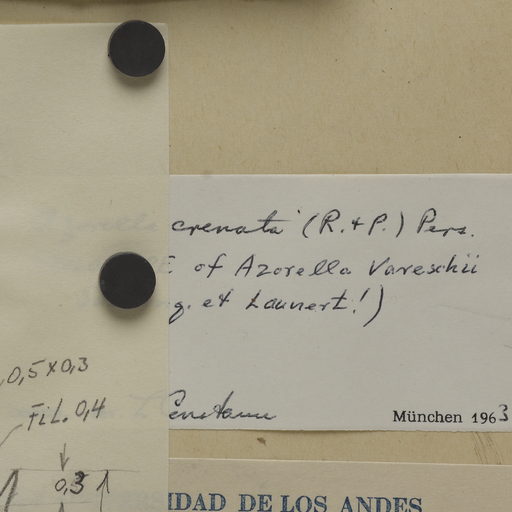 crenata (R. + P.) Pers.
E of Azorella Vareschii
g. et Launert!)
0,5 x 0,3
FiL. 0,4
München 1963
0,3
IDAD DE LOS ANDES